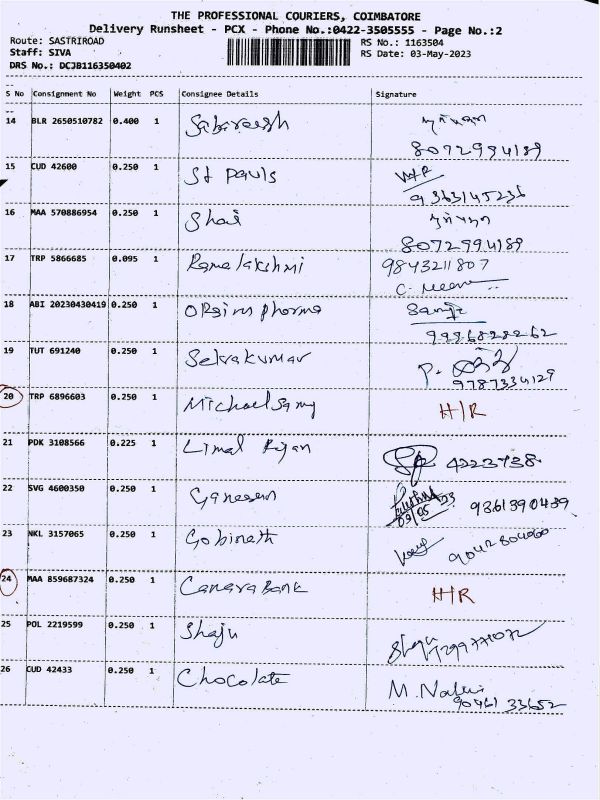 THE PROFESSIONAL COURIERS, COIMBATORE
Delivery Runsheet - PCX - Phone No.:0422-3505555 - Page No.:2
Route: SASTRIROAD RS No.: 1163504
Staff: SIVA RS Date: 03-May-2023
DRS No.: DCJB116350402
S No Consignment No Weight PCS Consignee Details Signature
14 BLR 2650510782 0.400 1 Sabareesh
8072994189
15 CUD 42600 0.250 1 St pauls
9363145236
16 MAA 570886954 0.250 1
8072994189
17 TRP 5866685 0.095 1 Ramalakshmi 9843211807
C. Meena
18 ABI 20230430419 0.250 1 pharma
19 TUT 691240 0.250 1 Selvakumar P.
9787334129
20 TRP 6896603 0.250 1 Michael Samy H/R
21 PDK 3108566 0.225 1 Limal 4223738
22 SVG 4600350 0.250 1 Ganesan 9361390439
23 NKL 3157065 0.250 1 Gobinath
24 MAA 859687324 0.250 1 Canara Bank H/R
25 POL 2219599 0.250 1 Shaju
26 CUD 42433 0.250 1 Chocolate M.
90461 33652